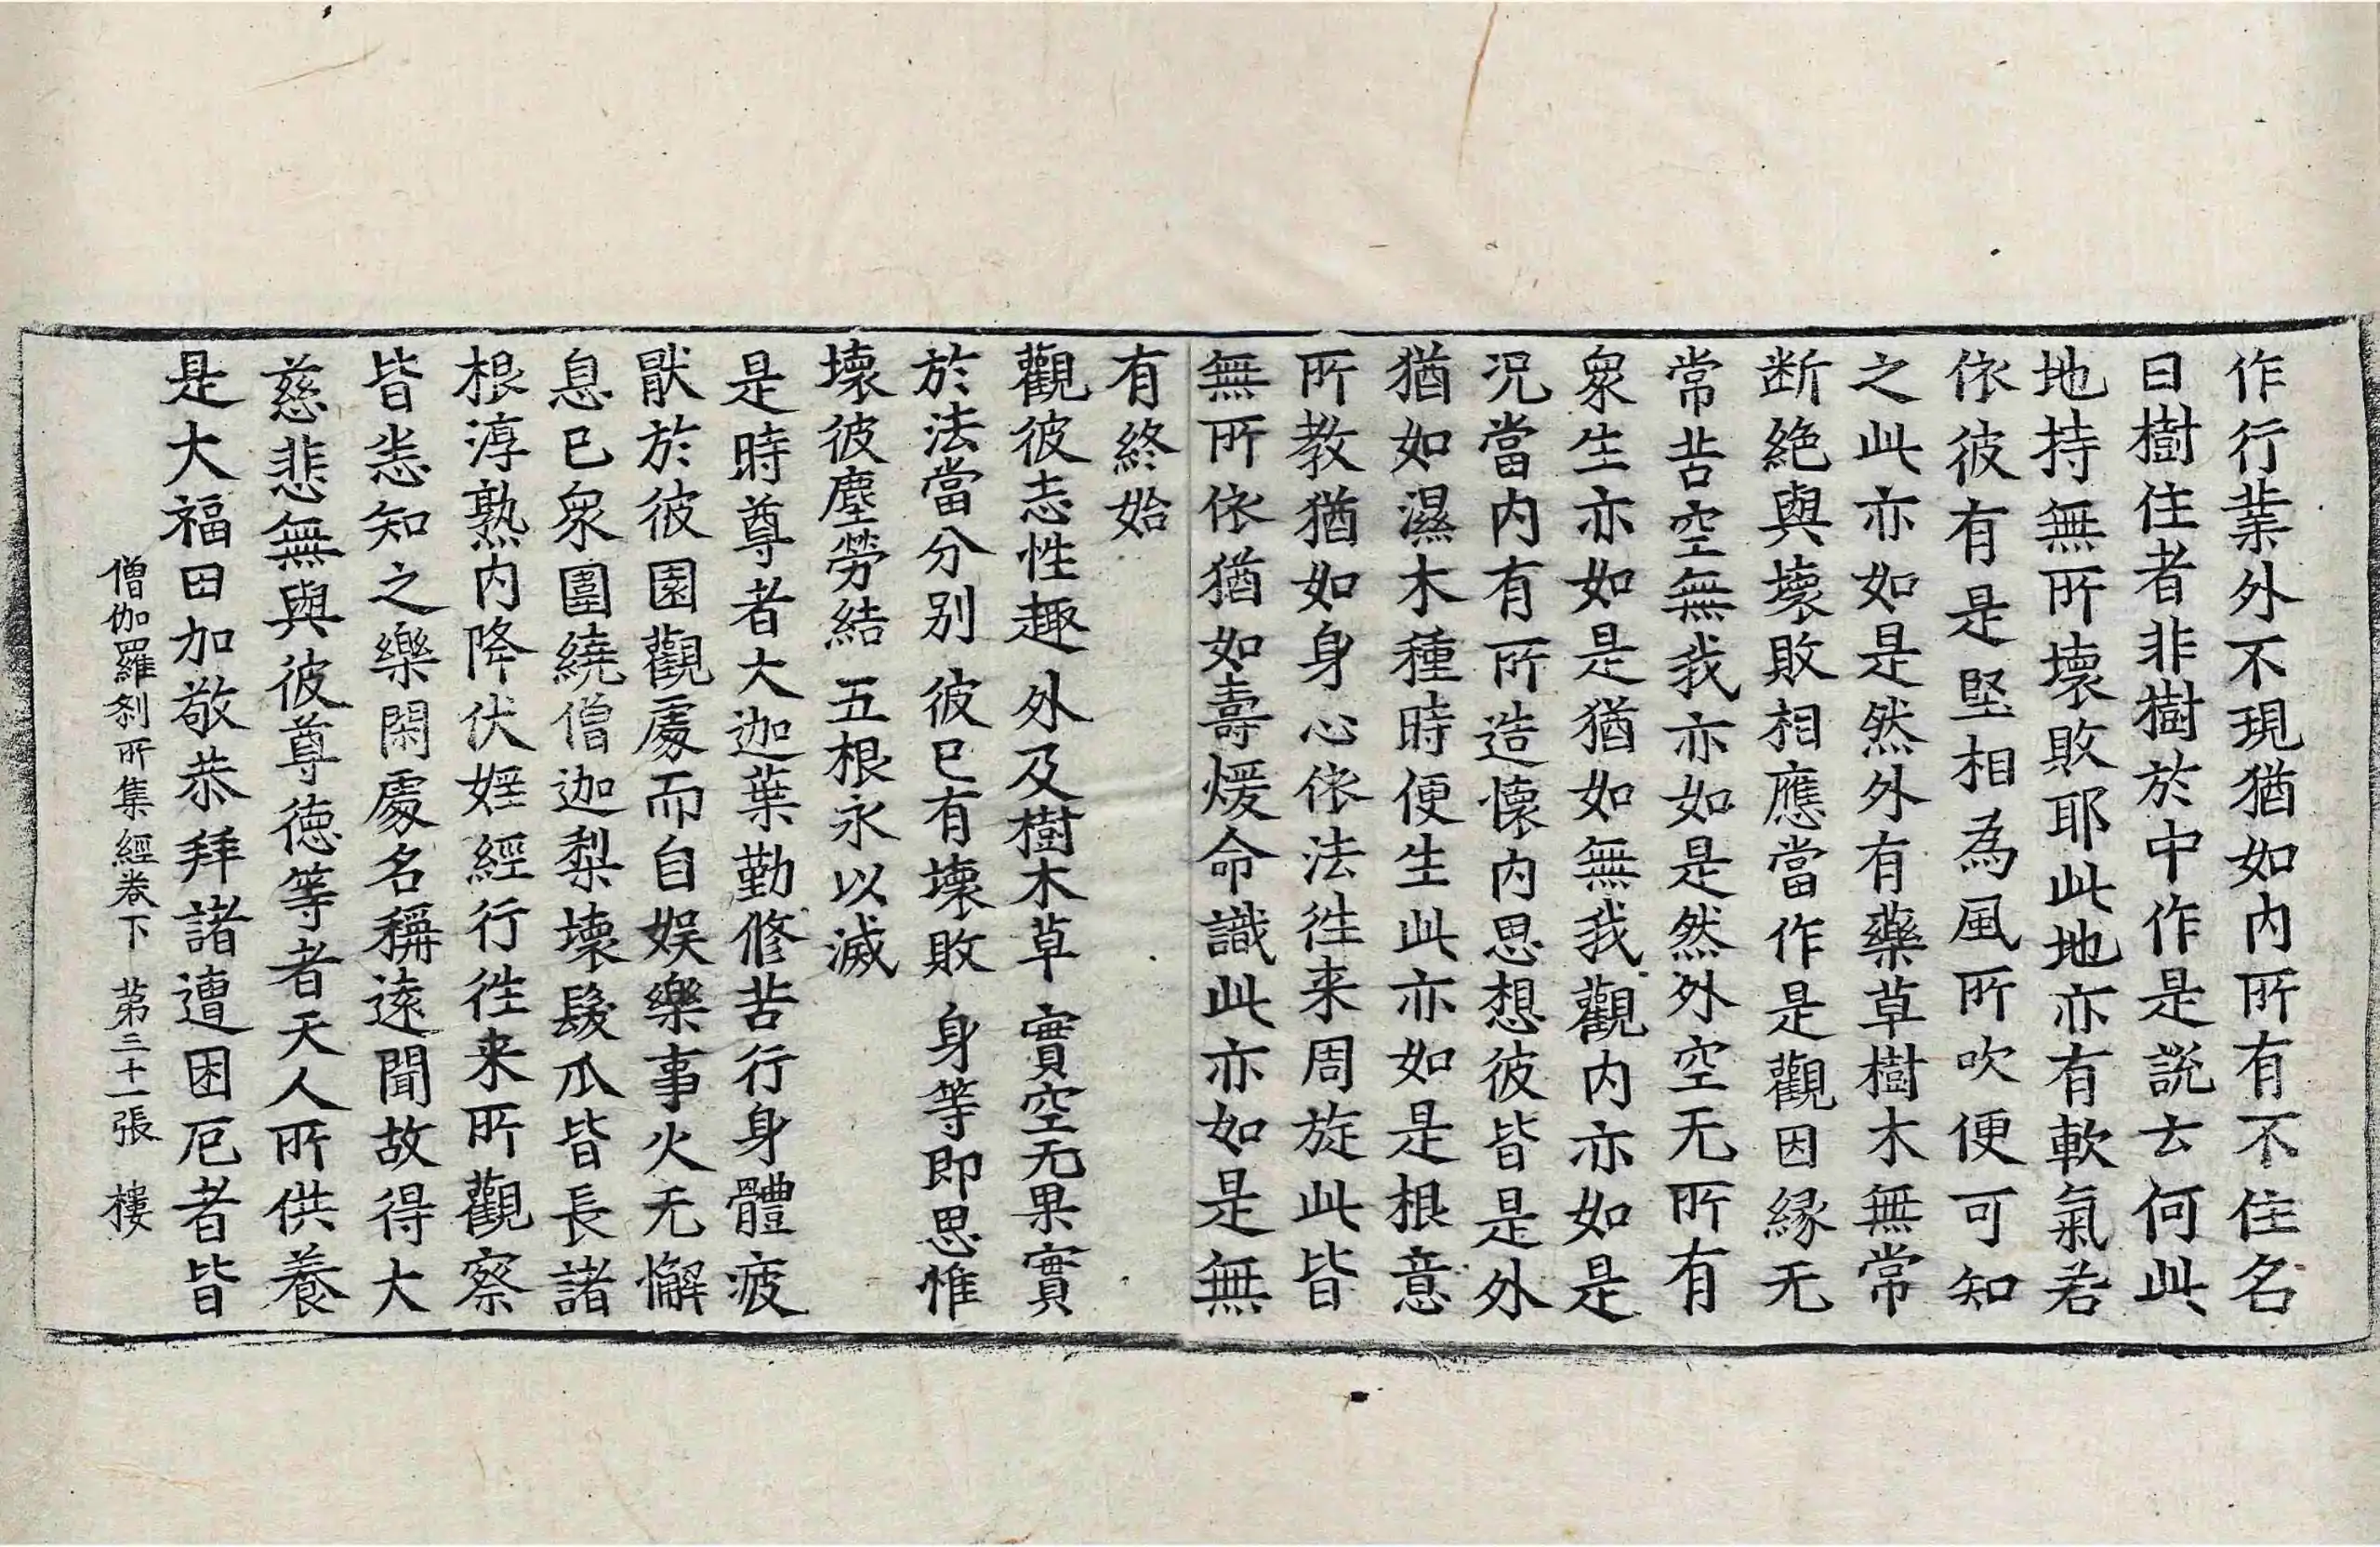 作行業外不現猶如内所有不住名
曰樹住者非樹於中作是說去何此
地持無所壞敗耶此地亦有軟氣若
依彼有是堅相為風所吹便可知
之此亦如是然外有藥草樹木無常
断絕與壞敗相應當作是觀因緣无
常苦空無我亦如是然外空无所有
衆生亦如是猶如無我觀内亦如是
況當内有所造懷内思想彼皆是外
猶如濕木種時便生此亦如是根意
所教猶如身心依法往来周旋此皆
無所依猶如壽煖命識此亦如是無
有終始
觀彼志性趣 外及樹木草 實空无果實
於法當分别 彼已有壞敗 身等即思惟
壞彼塵勞結 五根永以滅
是時尊者大迦葉勤修苦行身體疲
猒於彼園觀處而自娱樂事火无懈
息已衆圍繞僧迦梨壞髮爪皆長諸
根淳熟内降伏婬經行往来所觀察
皆悉知之樂閑處名稱遠聞故得大
慈悲無與彼尊德等者天人所供養
是大福田加敬恭拜諸遭困厄者皆
僧伽羅刹所集經卷下 第三十一張 樓